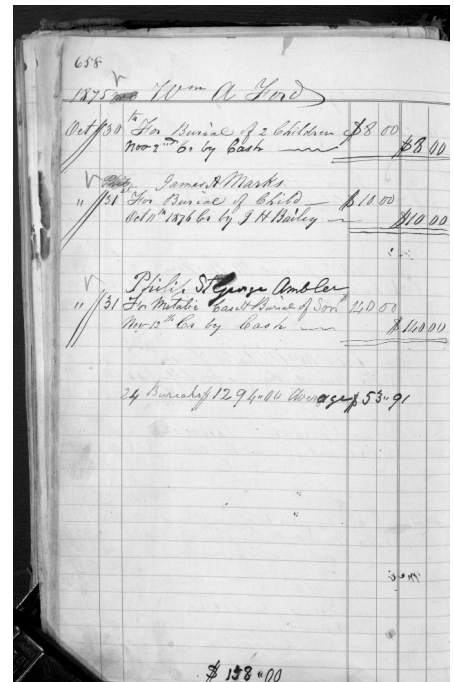 658
1875 Wm A Ford
Oct 30th For Burial of 2 Children $8 00
Nov 2nd Cr by Cash $8 00
James A Marks
" 31 For Burial of Child $10.00
Oct 11th 1876 Cr by J H Bailey $10.00
Philip St George Ambler
" 31 For Metalic Case & Burial of Son 140 00
Nov 12th Cr by Cash $140 00
24 Burials $1294"00 Average $53"91
$158"00